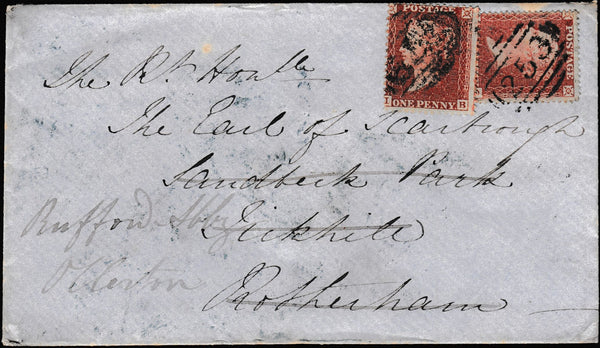 POSTAGE
ONE PENNY
I B
POSTAGE
The Rt Honble
The Earl of Scarbrough
Sandbeck Park
Tickhill
Rotherham
Rufford Abby
Ollerton